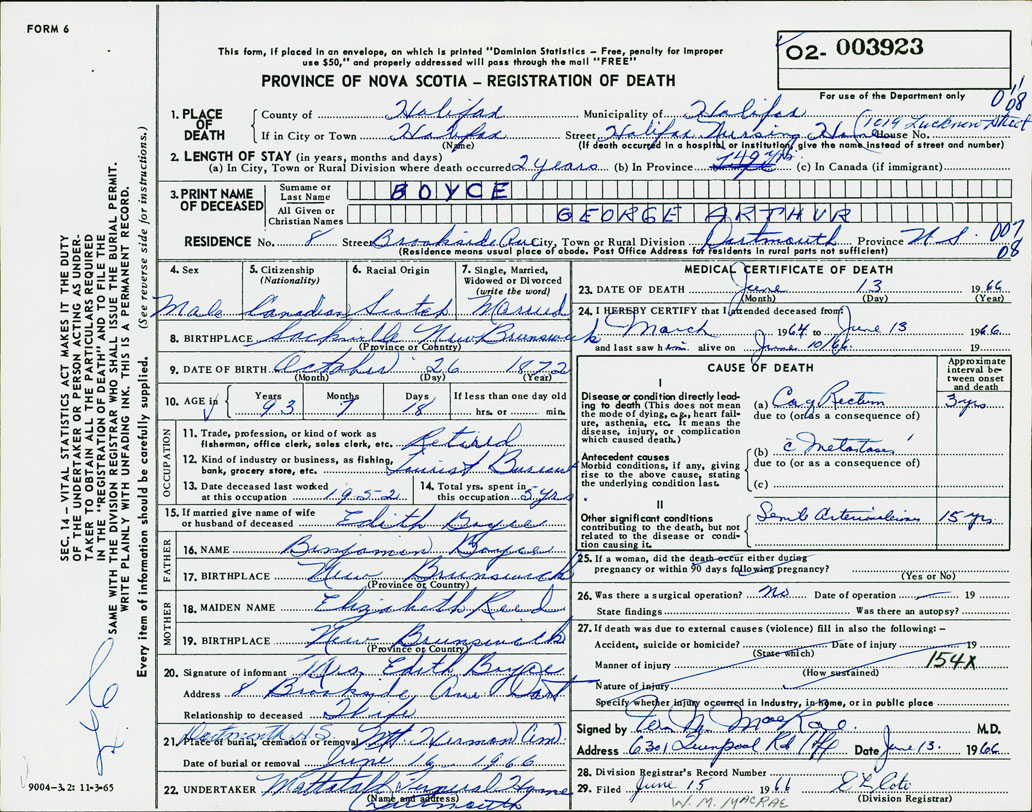 FORM 6
This form, if placed in an envelope, on which is printed "Dominion Statistics – Free, penalty for improper
use $50," and properly addressed will pass through the mail "FREE"
PROVINCE OF NOVA SCOTIA – REGISTRATION OF DEATH
02- 003923
For use of the Department only
008
1. PLACE OF DEATH
County of Halifax Municipality of Halifax
(1019 Lucknow Street
If in City or Town Halifax Street Halifax Nursing Home House No.
(Name) (If death occurred in a hospital or institution, give the name instead of street and number)
2. LENGTH OF STAY (in years, months and days)
(a) In City, Town or Rural Division where death occurred 2 years (b) In Province (c) In Canada (if immigrant)
3. PRINT NAME OF DECEASED
Surname or Last Name BOYCE
All Given or Christian Names GEORGE ARTHUR
RESIDENCE No. 8 Street Brookside Ave City, Town or Rural Division Dartmouth Province N.S. 007
08
(Residence means usual place of abode. Post Office Address for residents in rural parts not sufficient)
4. Sex 5. Citizenship (Nationality) 6. Racial Origin 7. Single, Married, Widowed or Divorced (write the word)
Male Canadian Scotch Married
8. BIRTHPLACE Sackville New Brunswick
(Province or Country)
9. DATE OF BIRTH October 26 1872
(Month) (Day) (Year)
10. AGE in Years Months Days If less than one day old
93 7 18 hrs. or min.
OCCUPATION
11. Trade, profession, or kind of work as fisherman, office clerk, sales clerk, etc. Retired
12. Kind of industry or business, as fishing, bank, grocery store, etc. Tourist Bureau
13. Date deceased last worked at this occupation 1952 14. Total yrs. spent in this occupation 5 yrs
15. If married give name of wife or husband of deceased Edith Boyce
FATHER
16. NAME Binjamin Boyce
17. BIRTHPLACE New Brunswick
(Province or Country)
MOTHER
18. MAIDEN NAME Elizabeth Reed
19. BIRTHPLACE New Brunswick
(Province or Country)
20. Signature of informant Mrs. Edith Boyce
Address 8 Brookside Ave Dart
Relationship to deceased Wife
Dartmouth N.S.
21. Place of burial, cremation or removal Mt Hermon (Cem)
Date of burial or removal June 16 1966
22. UNDERTAKER Mattatall Funeral Home
(Name and address)
Dartmouth
MEDICAL CERTIFICATE OF DEATH
23. DATE OF DEATH June 13 1966
(Month) (Day) (Year)
24. I HEREBY CERTIFY that I attended deceased from
March 1964 to June 13 1966
and last saw him alive on June 10/66
CAUSE OF DEATH
Approximate interval between onset and death
I
Disease or condition directly leading to death (This does not mean the mode of dying, e.g., heart failure, asthenia, etc. It means the disease, injury, or complication which caused death.)
(a) Ca of Rectum 3 yrs
due to (or as a consequence of)
Antecedent causes
Morbid conditions, if any, giving rise to the above cause, stating the underlying condition last.
(b) c Metastasis
due to (or as a consequence of)
(c)
II
Other significant conditions contributing to the death, but not related to the disease or condition causing it.
Senile Arteriosclerosis 15 yrs
25. If a woman, did the death occur either during
pregnancy or within 90 days following pregnancy?
(Yes or No)
26. Was there a surgical operation? No Date of operation 19
State findings Was there an autopsy?
27. If death was due to external causes (violence) fill in also the following: –
Accident, suicide or homicide? Date of injury 19
(State which)
154X
Manner of injury
(How sustained)
Nature of injury
Specify whether injury occurred in industry, in home, or in public place
Signed by M.D.
Address 6301 Quinpool Rd Hfx Date June 13. 1966
28. Division Registrar's Record Number
29. Filed June 15 1966
(Division Registrar)
W. M. MACRAE
SEC. 14 – VITAL STATISTICS ACT MAKES IT THE DUTY
OF THE UNDERTAKER OR PERSON ACTING AS UNDER-
TAKER TO OBTAIN ALL THE PARTICULARS REQUIRED
IN THE "REGISTRATION OF DEATH" AND TO FILE THE
SAME WITH THE DIVISION REGISTRAR WHO SHALL ISSUE THE BURIAL PERMIT.
WRITE PLAINLY WITH UNFADING INK. THIS IS A PERMANENT RECORD.
Every item of information should be carefully supplied. (See reverse side for instructions.)
9004-3.2: 11-3-65